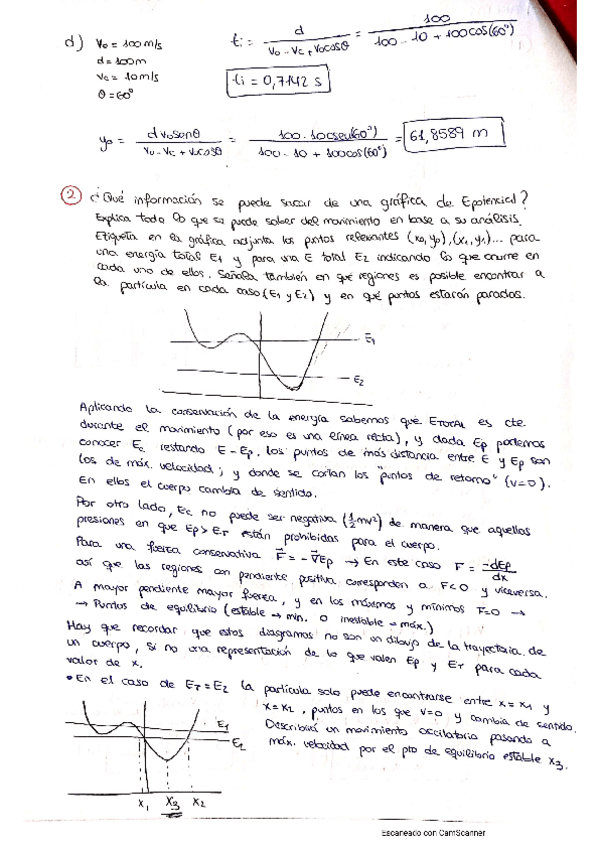 d) v₀ = 100 m/s
d = 100 m
vc = 10 m/s
θ = 60°
ti = d / (v₀ - vc + v₀cosθ) = 100 / (100 - 10 + 100cos(60°))
ti = 0,7142 s
y₀ = d v₀ senθ / (v₀ - vc + v₀cosθ) = 100 · 100 sen(60°) / (100 - 10 + 100cos(60°)) = 61,8589 m
② ¿Qué información se puede sacar de una gráfica de Epotencial?
Explica todo lo que se puede saber del movimiento en base a su análisis.
Etiqueta en la gráfica adjunta los puntos relevantes (x₀,y₀),(x₁,y₁)... para
una energía total E₁ y para una E total E₂ indicando lo que ocurre en
cada uno de ellos. Señala también en qué regiones es posible encontrar a
la partícula en cada caso (E₁ y E₂) y en qué puntos estarán parados.
E₁
E₂
Aplicando la conservación de la energía sabemos que ETOTAL es cte
durante el movimiento (por eso es una línea recta), y dada Ep podemos
conocer Ec restando E - Ep. Los puntos de más distancia entre E y Ep son
los de máx. velocidad; y donde se cortan los "puntos de retorno" (v=0).
En ellos el cuerpo cambia de sentido.
Por otro lado, Ec no puede ser negativa (½mv²) de manera que aquellas
presiones en que Ep > ET están prohibidas para el cuerpo.
Para una fuerza conservativa F⃗ = -∇⃗Ep → En este caso F = -dEp/dx
así que las regiones con pendiente positiva corresponden a F<0 y viceversa.
A mayor pendiente mayor fuerza, y en los máximos y mínimos F=0 →
→ Puntos de equilibrio (estable → mín. o inestable → máx.)
Hay que recordar que estos diagramas no son un dibujo de la trayectoria de
un cuerpo, si no una representación de lo que valen Ep y ET para cada
valor de x.
• En el caso de ET = E₂ la partícula solo puede encontrarse entre x = x₁ y
x = x₂, puntos en los que v=0 y cambia de sentido.
Describirá un movimiento oscilatorio pasando a
máx. velocidad por el pto de equilibrio estable x₃.
E₁
E₂
x₁ x₃ x₂
Escaneado con CamScanner